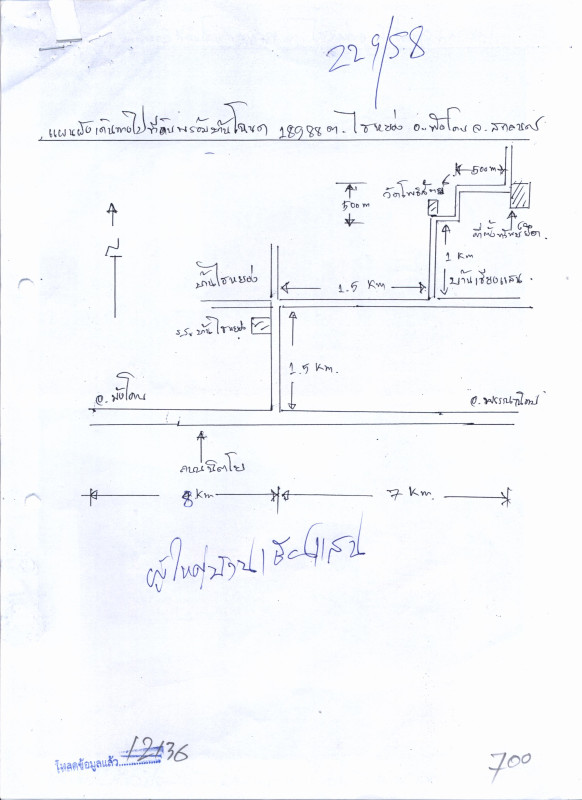 229/58
แผนผังเดินทางไปที่ดินพร้อมบ้านโฉนด 18988 ต. ไชหย่อง อ. พังโคน จ. สกลนคร
500 m
วัดโพธิ์
500 m
ที่ตั้งทรัพย์
1 Km
บ้านเชียงแสน
บ้านไชหย่อง
1.5 Km
ร.ร. บ้านไชหย่อง
1.5 Km.
อ. พังโคน
อ. พรรณานิคม
ถนนนิตโย
8 Km
7 Km.
ผู้ใหญ่บ้านเชียงแสน
โหลดข้อมูลแล้ว
12136
700